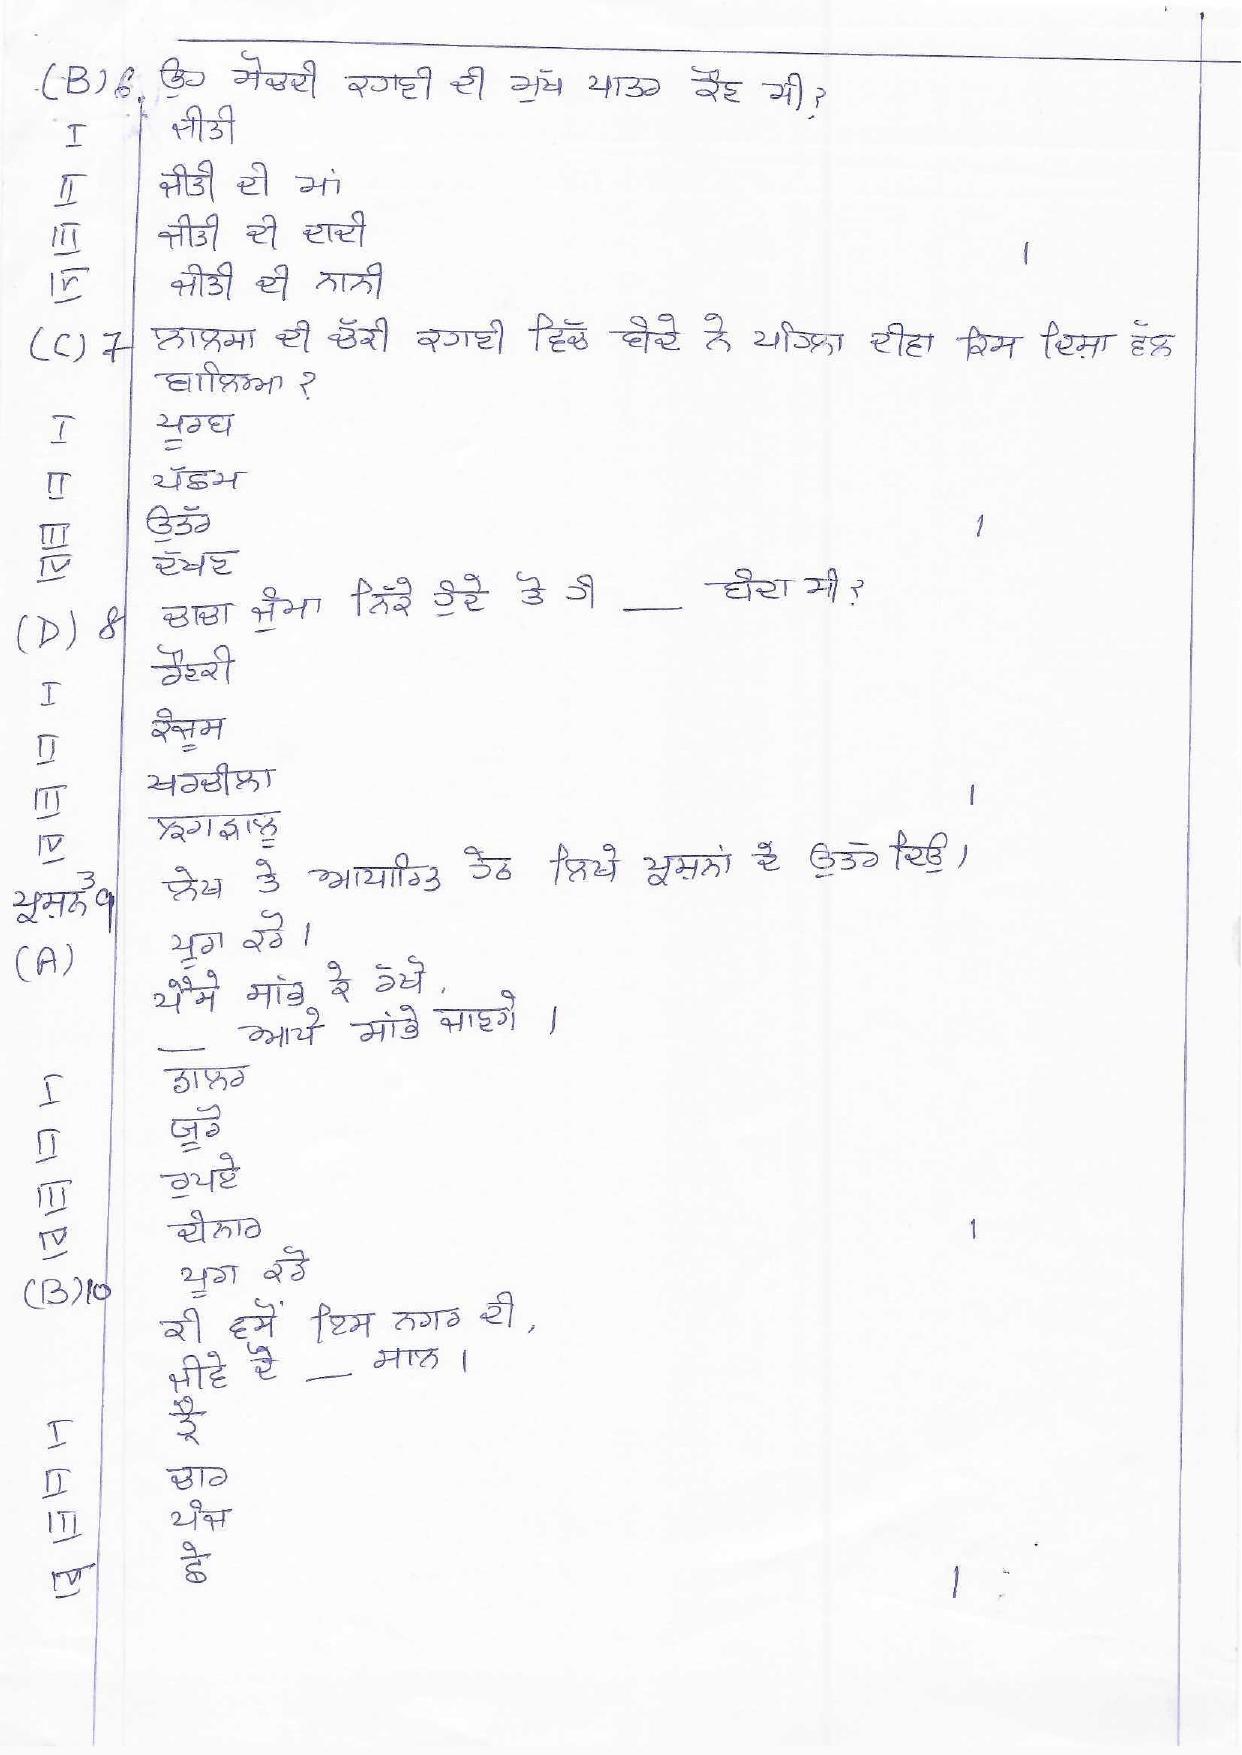 (B) 6. ਉਹ ਸੋਚਦੀ ਕਹਾਣੀ ਦੀ ਮੁੱਖ ਪਾਤਰ ਕੌਣ ਸੀ?
I ਜੀਤੀ
II ਜੀਤੀ ਦੀ ਮਾਂ
III ਜੀਤੀ ਦੀ ਦਾਦੀ
1
IV ਜੀਤੀ ਦੀ ਨਾਨੀ
(C) 7 ਲਾਲਸਾ ਦੀ ਚੱਕੀ ਕਹਾਣੀ ਵਿੱਚ ਬੰਦੇ ਨੇ ਪਹਿਲਾ ਦੀਵਾ ਕਿਸ ਦਿਸ਼ਾ ਵੱਲ
ਬਾਲਿਆ?
I ਪੂਰਬ
II ਪੱਛਮ
III ਉਤੱਰ
1
IV ਦੱਖਣ
(D) 8 ਚਾਚਾ ਜੁੰਮਾ ਨਿੱਕੇ ਹੁੰਦੇ ਤੋਂ ਹੀ __ ਬੰਦਾ ਸੀ?
I ਰੌਣਕੀ
II ਕੰਜੂਸ
III ਖਰਚੀਲਾ
1
IV ਝਗੜਾਲੂ
ਪ੍ਰਸ਼ਨ 3 ਲੇਖ ਤੇ ਆਧਾਰਿਤ ਹੇਠ ਲਿਖੇ ਪ੍ਰਸ਼ਨਾਂ ਦੇ ਉਤੱਰ ਦਿਉ।
(A) 9 ਪੂਰਾ ਕਰੋ।
ਪੈਸੇ ਸਾਂਭ ਕੇ ਰੱਖੋ,
__ ਆਪੇ ਸਾਂਭੇ ਜਾਣਗੇ।
I ਡਾਲਰ
II ਯੂਰੋ
III ਰੁਪਏ
IV ਦੀਨਾਰ
1
(B) 10 ਪੂਰਾ ਕਰੋ
ਕੀ ਵਸੋਂ ਇਸ ਨਗਰ ਦੀ,
ਜੀਵੇ ਦੋ __ ਸਾਲ।
I ਤ੍ਰੈ
II ਚਾਰ
III ਪੰਜ
IV ਛੇ
1